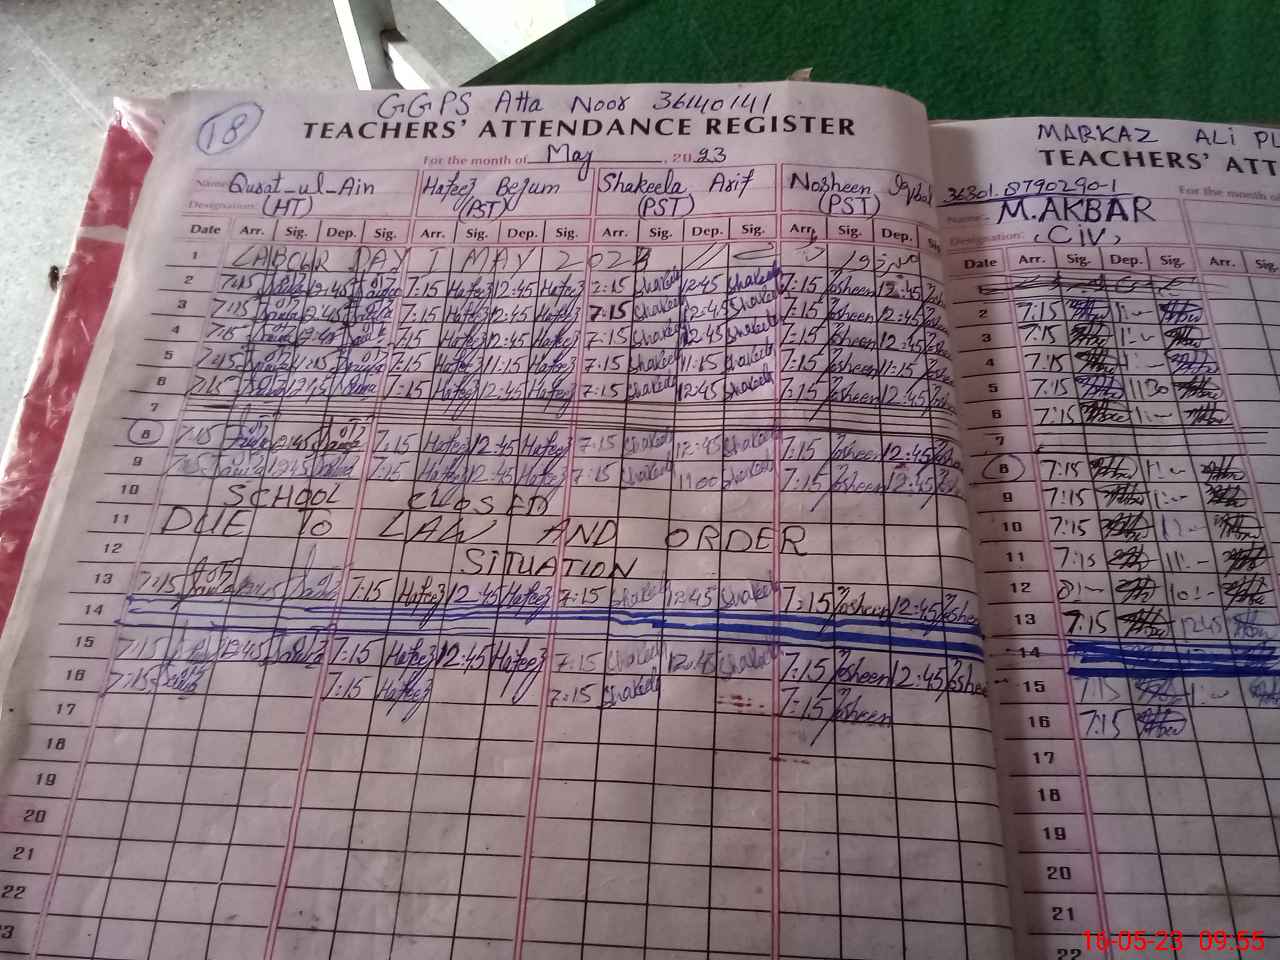 GGPS Atta Noor 36140141
18
TEACHERS' ATTENDANCE REGISTER
For the month of May, 2023
Name Qurat-ul-Ain Hafeez Begum Shakeela Arif Nosheen Iqbal
Designation: (HT) (PST) (PST) (PST)
Date Arr. Sig. Dep. Sig. Arr. Sig. Dep. Sig. Arr. Sig. Dep. Sig. Arr. Sig. Dep. Sig
1 LABOUR DAY 1 MAY 2023
2 7:15 12:45 7:15 Hafeez 12:45 Hafeez 7:15 Shakeela 12:45 Shakeela 7:15 Nosheen 12:45
3 7:15 12:45 7:15 Hafeez 12:45 Hafeez 7:15 Shakeela 12:45 Shakeela 7:15 Nosheen 12:45
4 7:15 12:45 7:15 Hafeez 12:45 Hafeez 7:15 Shakeela 12:45 Shakeela 7:15 Nosheen 12:45
5 7:15 11:15 7:15 Hafeez 11:15 Hafeez 7:15 Shakeela 11:15 Shakeela 7:15 Nosheen 11:15
6 7:15 12:45 7:15 Hafeez 12:45 Hafeez 7:15 Shakeela 12:45 Shakeela 7:15 Nosheen 12:45
7
8 7:15 12:45 7:15 Hafeez 12:45 Hafeez 7:15 Shakeela 12:45 Shakeela 7:15 Nosheen 12:45
9 7:15 12:45 7:15 Hafeez 12:45 Hafeez 7:15 Shakeela 1100 Shakeela 7:15 Nosheen 12:45
10 SCHOOL CLOSED
11 DUE TO LAW AND ORDER
12 SITUATION
13 7:15 7:15 Hafeez 12:45 Hafeez 7:15 Shakeela 12:45 Shakeela 7:15 Nosheen 12:45
14
15 7:15 12:45 7:15 Hafeez 12:45 Hafeez 7:15 Shakeela 12:45 Shakeela 7:15 Nosheen 12:45
16 7:15 7:15 Hafeez 7:15 Shakeela 7:15 Nosheen
17
18
19
20
21
22
MARKAZ ALI
TEACHERS' ATT
36301.8790290-1 For the month o
Name: M.AKBAR
Designation: (CIV)
Date Arr. Sig. Dep. Sig. Arr. Sig.
1
2 7:15 1:-
3 7:15 1:-
4 7:15 1:-
5 7:15 1130
6 7:15 1:-
7
8 7:15 1:-
9 7:15 1:-
10 7:15 1:-
11 7:15 11:-
12 8:- 10:-
13 7:15 1245
14
15 7:15 1:-
16 7:15
17
18
19
20
21
22
16-05-23 09:55